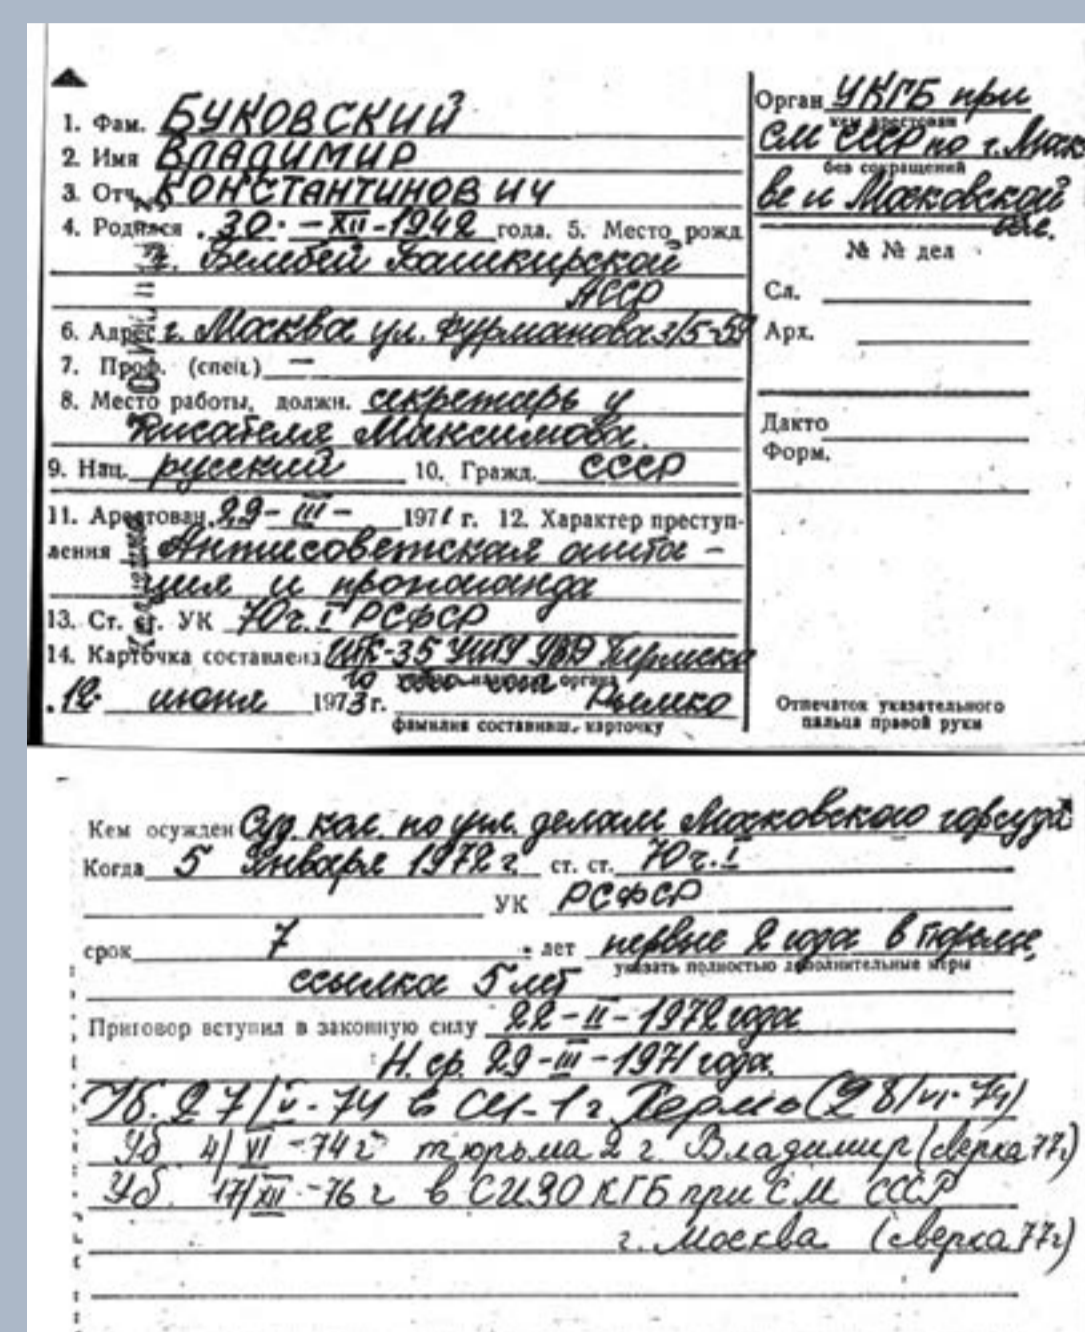 1. Фам. БУКОВСКИЙ
2. Имя ВЛАДИМИР
3. Отч. КОНСТАНТИНОВИЧ
4. Родился 30.-XII-1942 года. 5. Место рожд.
г. Белебей Башкирской
АССР
6. Адрес г. Москва ул. Фурманова 3/5-59
7. Проф. (спец.) —
8. Место работы, должн. секретарь у
писателя Максимова.
9. Нац. русский 10. Гражд. СССР
11. Арестован 29-III- 1971 г. 12. Характер преступ-
ления Антисоветская агита-
ция и пропаганда
13. Ст. ст. УК 70 ч. I РСФСР
14. Карточка составлена ИТК-35 УИТУ УВД Пермско
го
12. июня 1973 г. Рымко
фамилия составивш. карточку
Орган УКГБ при
кем арестован
СМ СССР по г. Моск
без сокращений
ве и Московской
обл.
№ № дел
Сл.
Арх.
Дакто
Форм.
Отпечаток указательного
пальца правой руки
Кем осужден Суд. кол. по уг. делам Московского горсуда
Когда 5 Января 1972 г. ст. ст. 70 ч. I
УК РСФСР
срок 7 лет первые 2 года в тюрьме,
указать полностью дополнительные меры
ссылка 5 лет
Приговор вступил в законную силу 22-II-1972 года
Н. ср. 29-III-1971 года.
Уб. 27/V-74 в СИ-1 г. Пермь (28/VI-74)
Уб 4/VI-74 г тюрьма 2 г. Владимир (сверка 77г)
Уб. 17/XII-76 г в СИЗО КГБ при СМ СССР
г. Москва (сверка 77г)